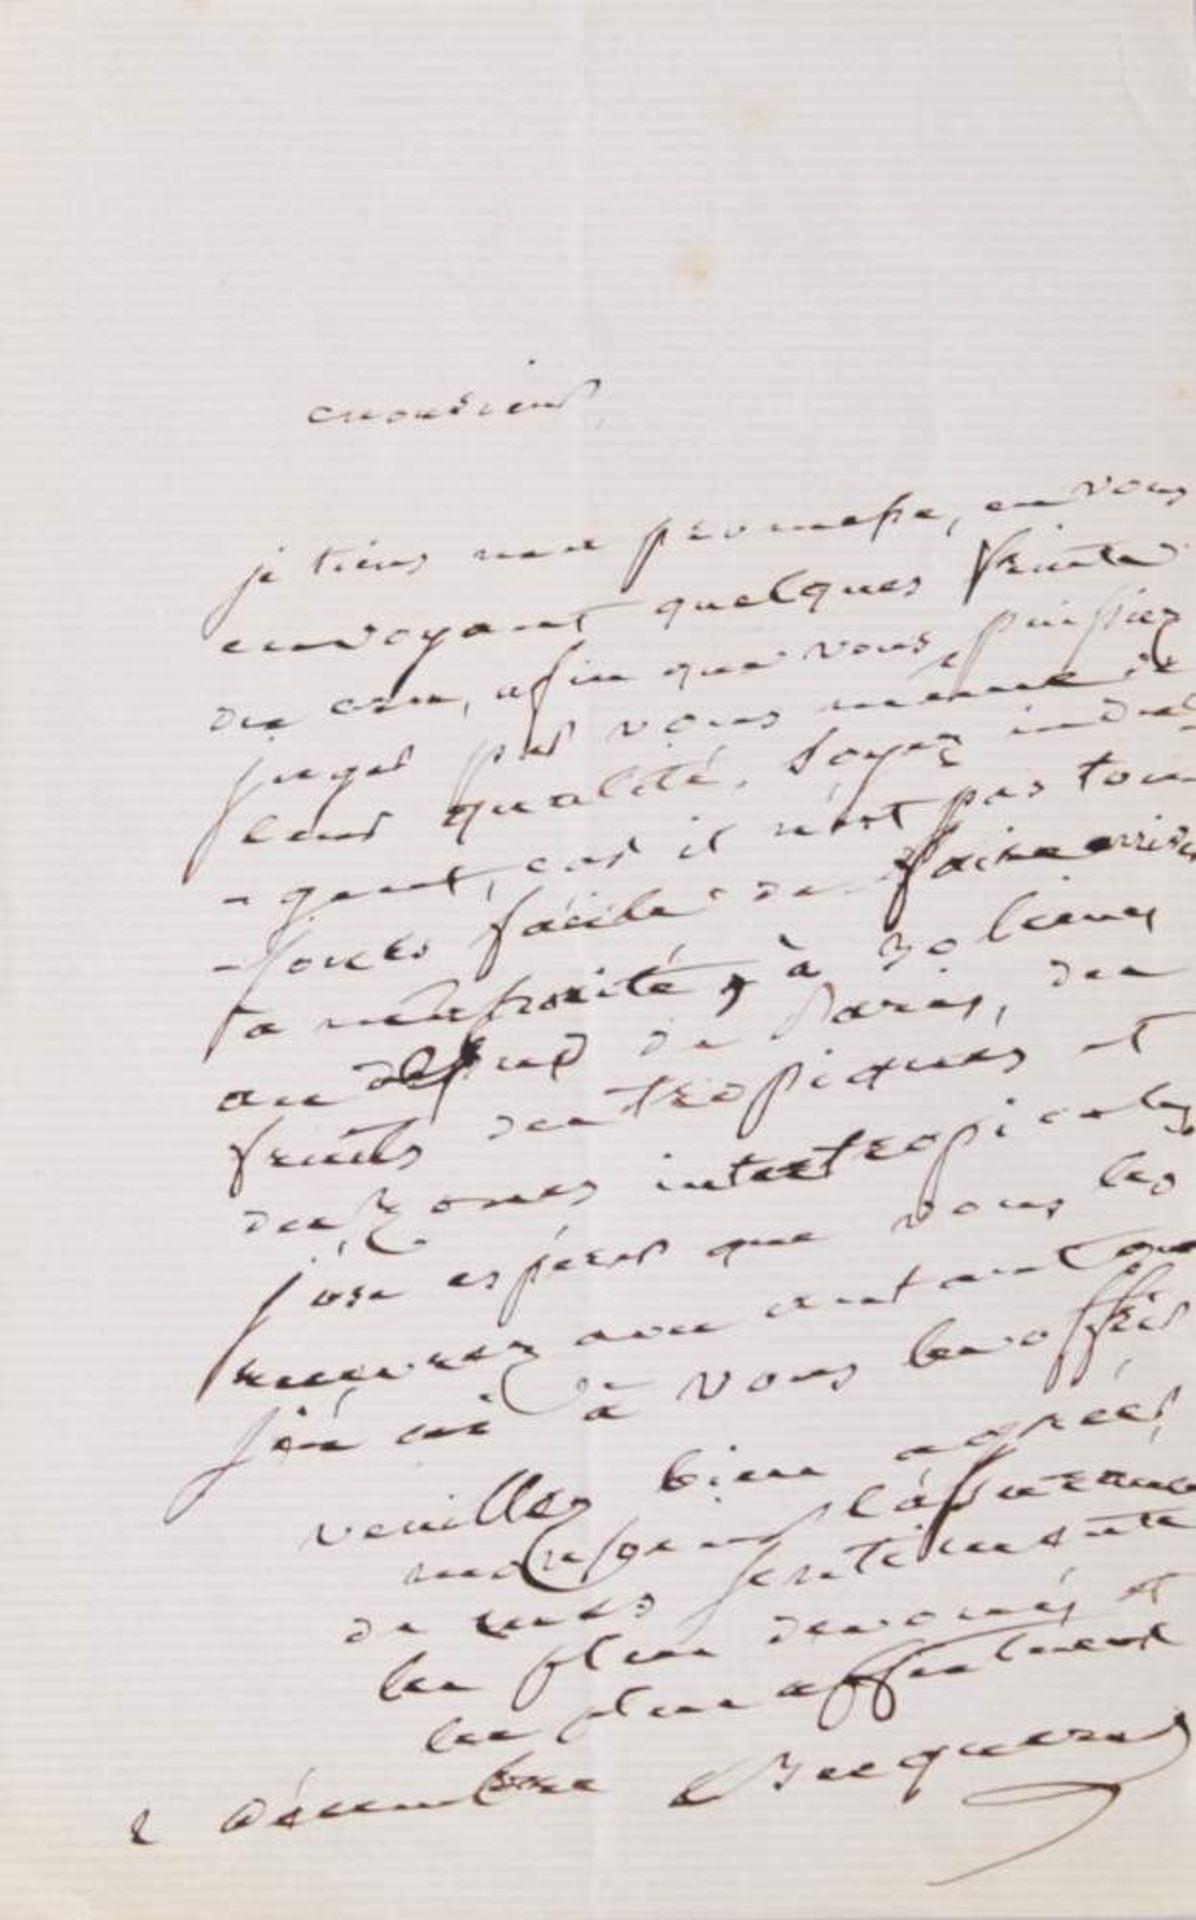 Monsieur,
je tiens ma promesse, en vous
envoyant quelques fruits
du cru, afin que vous puissiez
juger par vous même de
leur qualité. Soyez indul
-gent, car il n'est pas tou
-jours facile de faire arriver
à maturité, à 30 lieues
au de Paris, des
fruits des tropiques et
des zones intertropicales
j'ose espérer que vous les
recevrez avec autant que
j'en ai à vous les offrir
veuillez bien agréer,
monsieur l'assurance
de mes sentiments
les plus dévoués et
les plus affectueux
2 décembre Becquerel